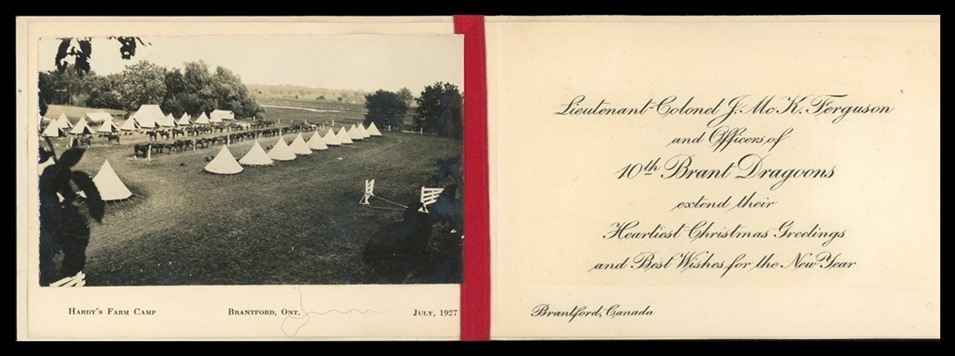 Hardy's Farm Camp Brantford, Ont. July, 1927
Lieutenant-Colonel J. Mc K. Ferguson
and Officers of
10th Brant Dragoons
extend their
Heartiest Christmas Greetings
and Best Wishes for the New Year
Brantford, Canada